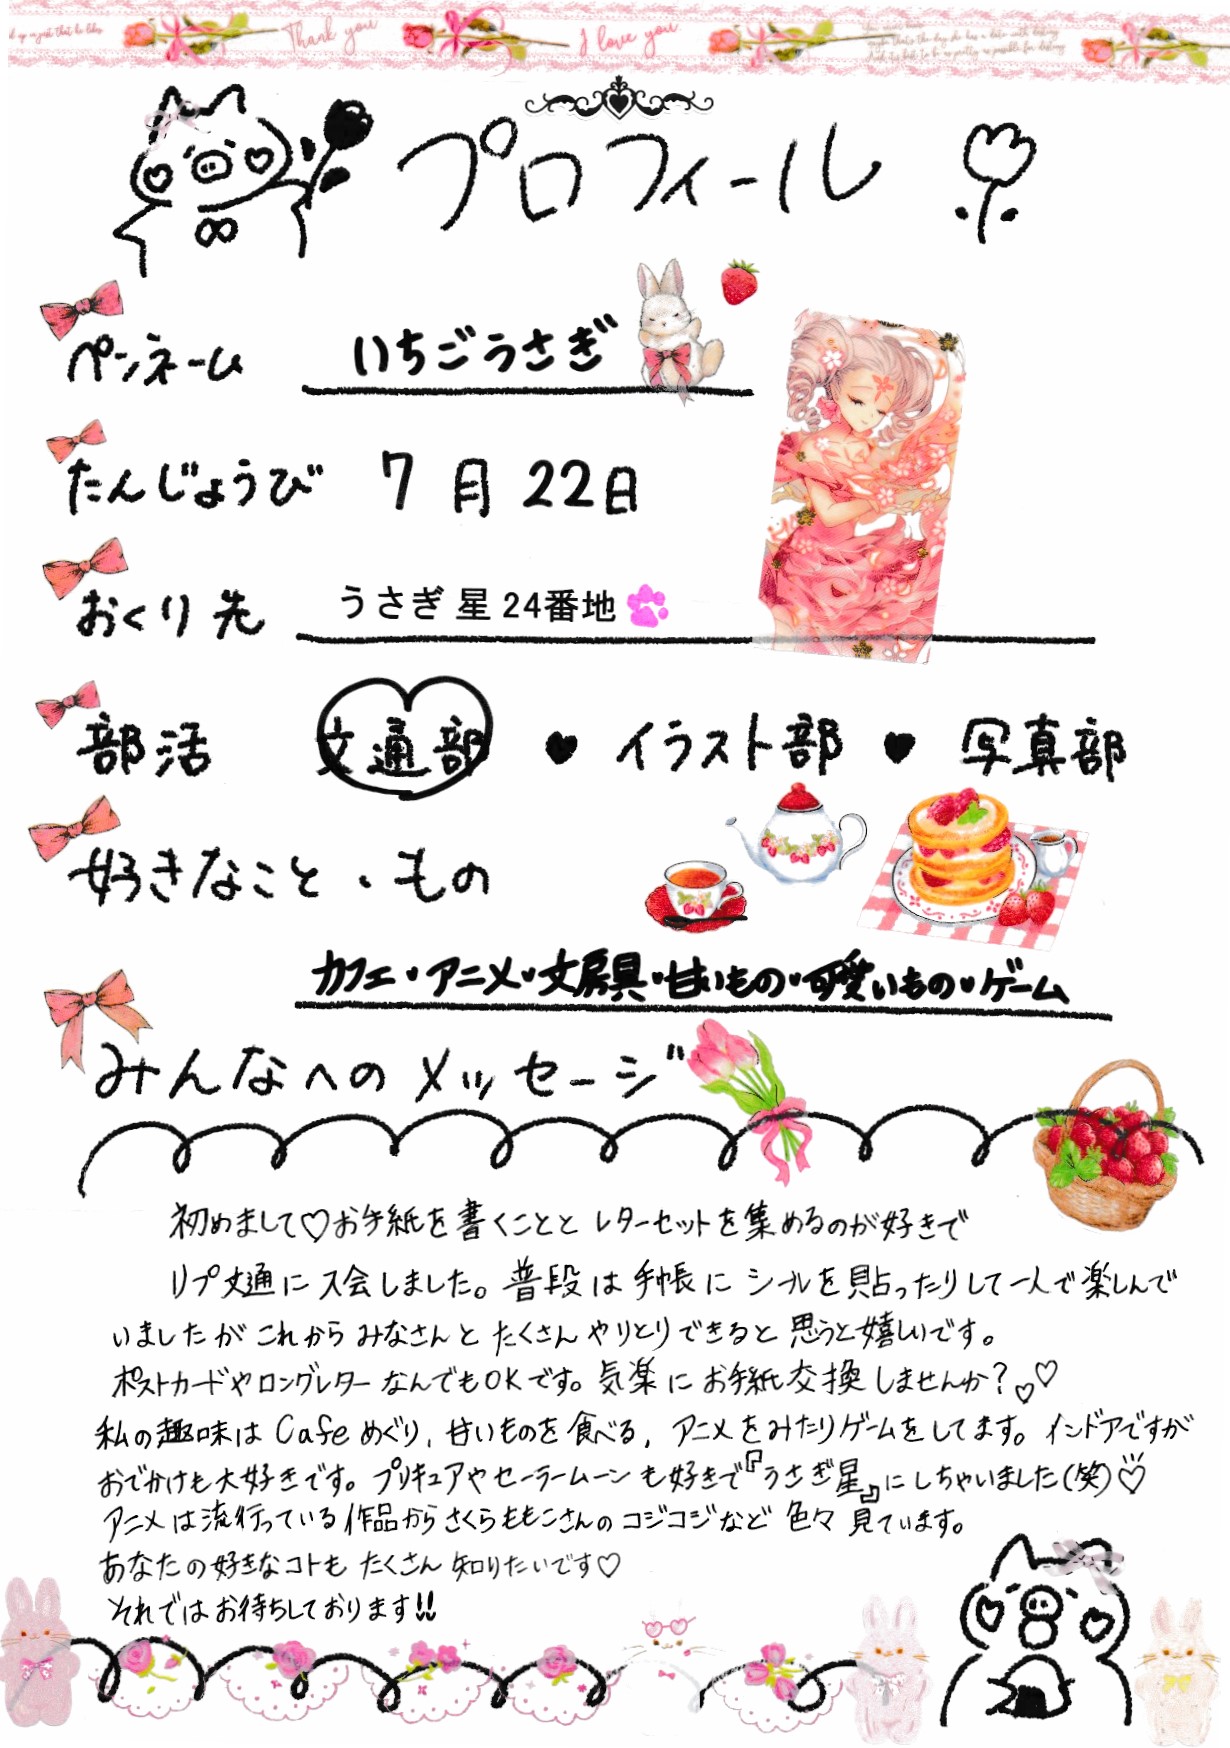 Thank you
I love you
プロフィール
ペンネーム いちごうさぎ
たんじょうび 7月22日
おくり先 うさぎ星24番地
部活 文通部 ♥ イラスト部 ♥ 写真部
好きなこと・もの
カフェ・アニメ・文房具・甘いもの・可愛いもの・ゲーム
みんなへのメッセージ
初めまして♡お手紙を書くこととレターセットを集めるのが好きで
リプ文通に入会しました。普段は手帳にシールを貼ったりして一人で楽しんで
いましたがこれからみなさんとたくさんやりとりできると思うと嬉しいです。
ポストカードやロングレターなんでもOKです。気楽にお手紙交換しませんか?♡♡
私の趣味はCafeめぐり、甘いものを食べる、アニメをみたりゲームをしてます。インドアですが
おでかけも大好きです。プリキュアやセーラームーンも好きで『うさぎ星』にしちゃいました(笑)♡
アニメは流行っている作品からさくらももこさんのコジコジなど色々見ています。
あなたの好きなコトもたくさん知りたいです♡
それではお待ちしております!!